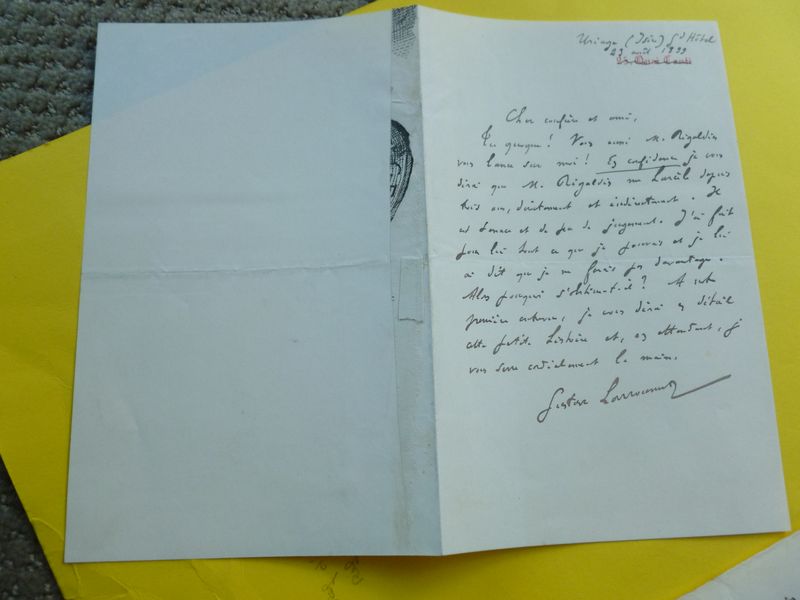 Uriage (Isère) Gd Hôtel
23 août 1899
Cher confrère et ami,
Tu quoque! Vous aussi M. Rigaldin
vous lance sur moi! En confidence je vous
dirai que M. Rigaldin me harcèle depuis
trois ans, directement et indirectement. Il
est tenace et de peu de jugement. J'ai fait
pour lui tout ce que je pouvais et je lui
ai dit que je ne ferais pas davantage.
Alors pourquoi s'obstine-t-il? A notre
première entrevue, je vous dirai en détail
cette petite histoire et, en attendant, je
vous serre cordialement la main.
Gustave Larroumet